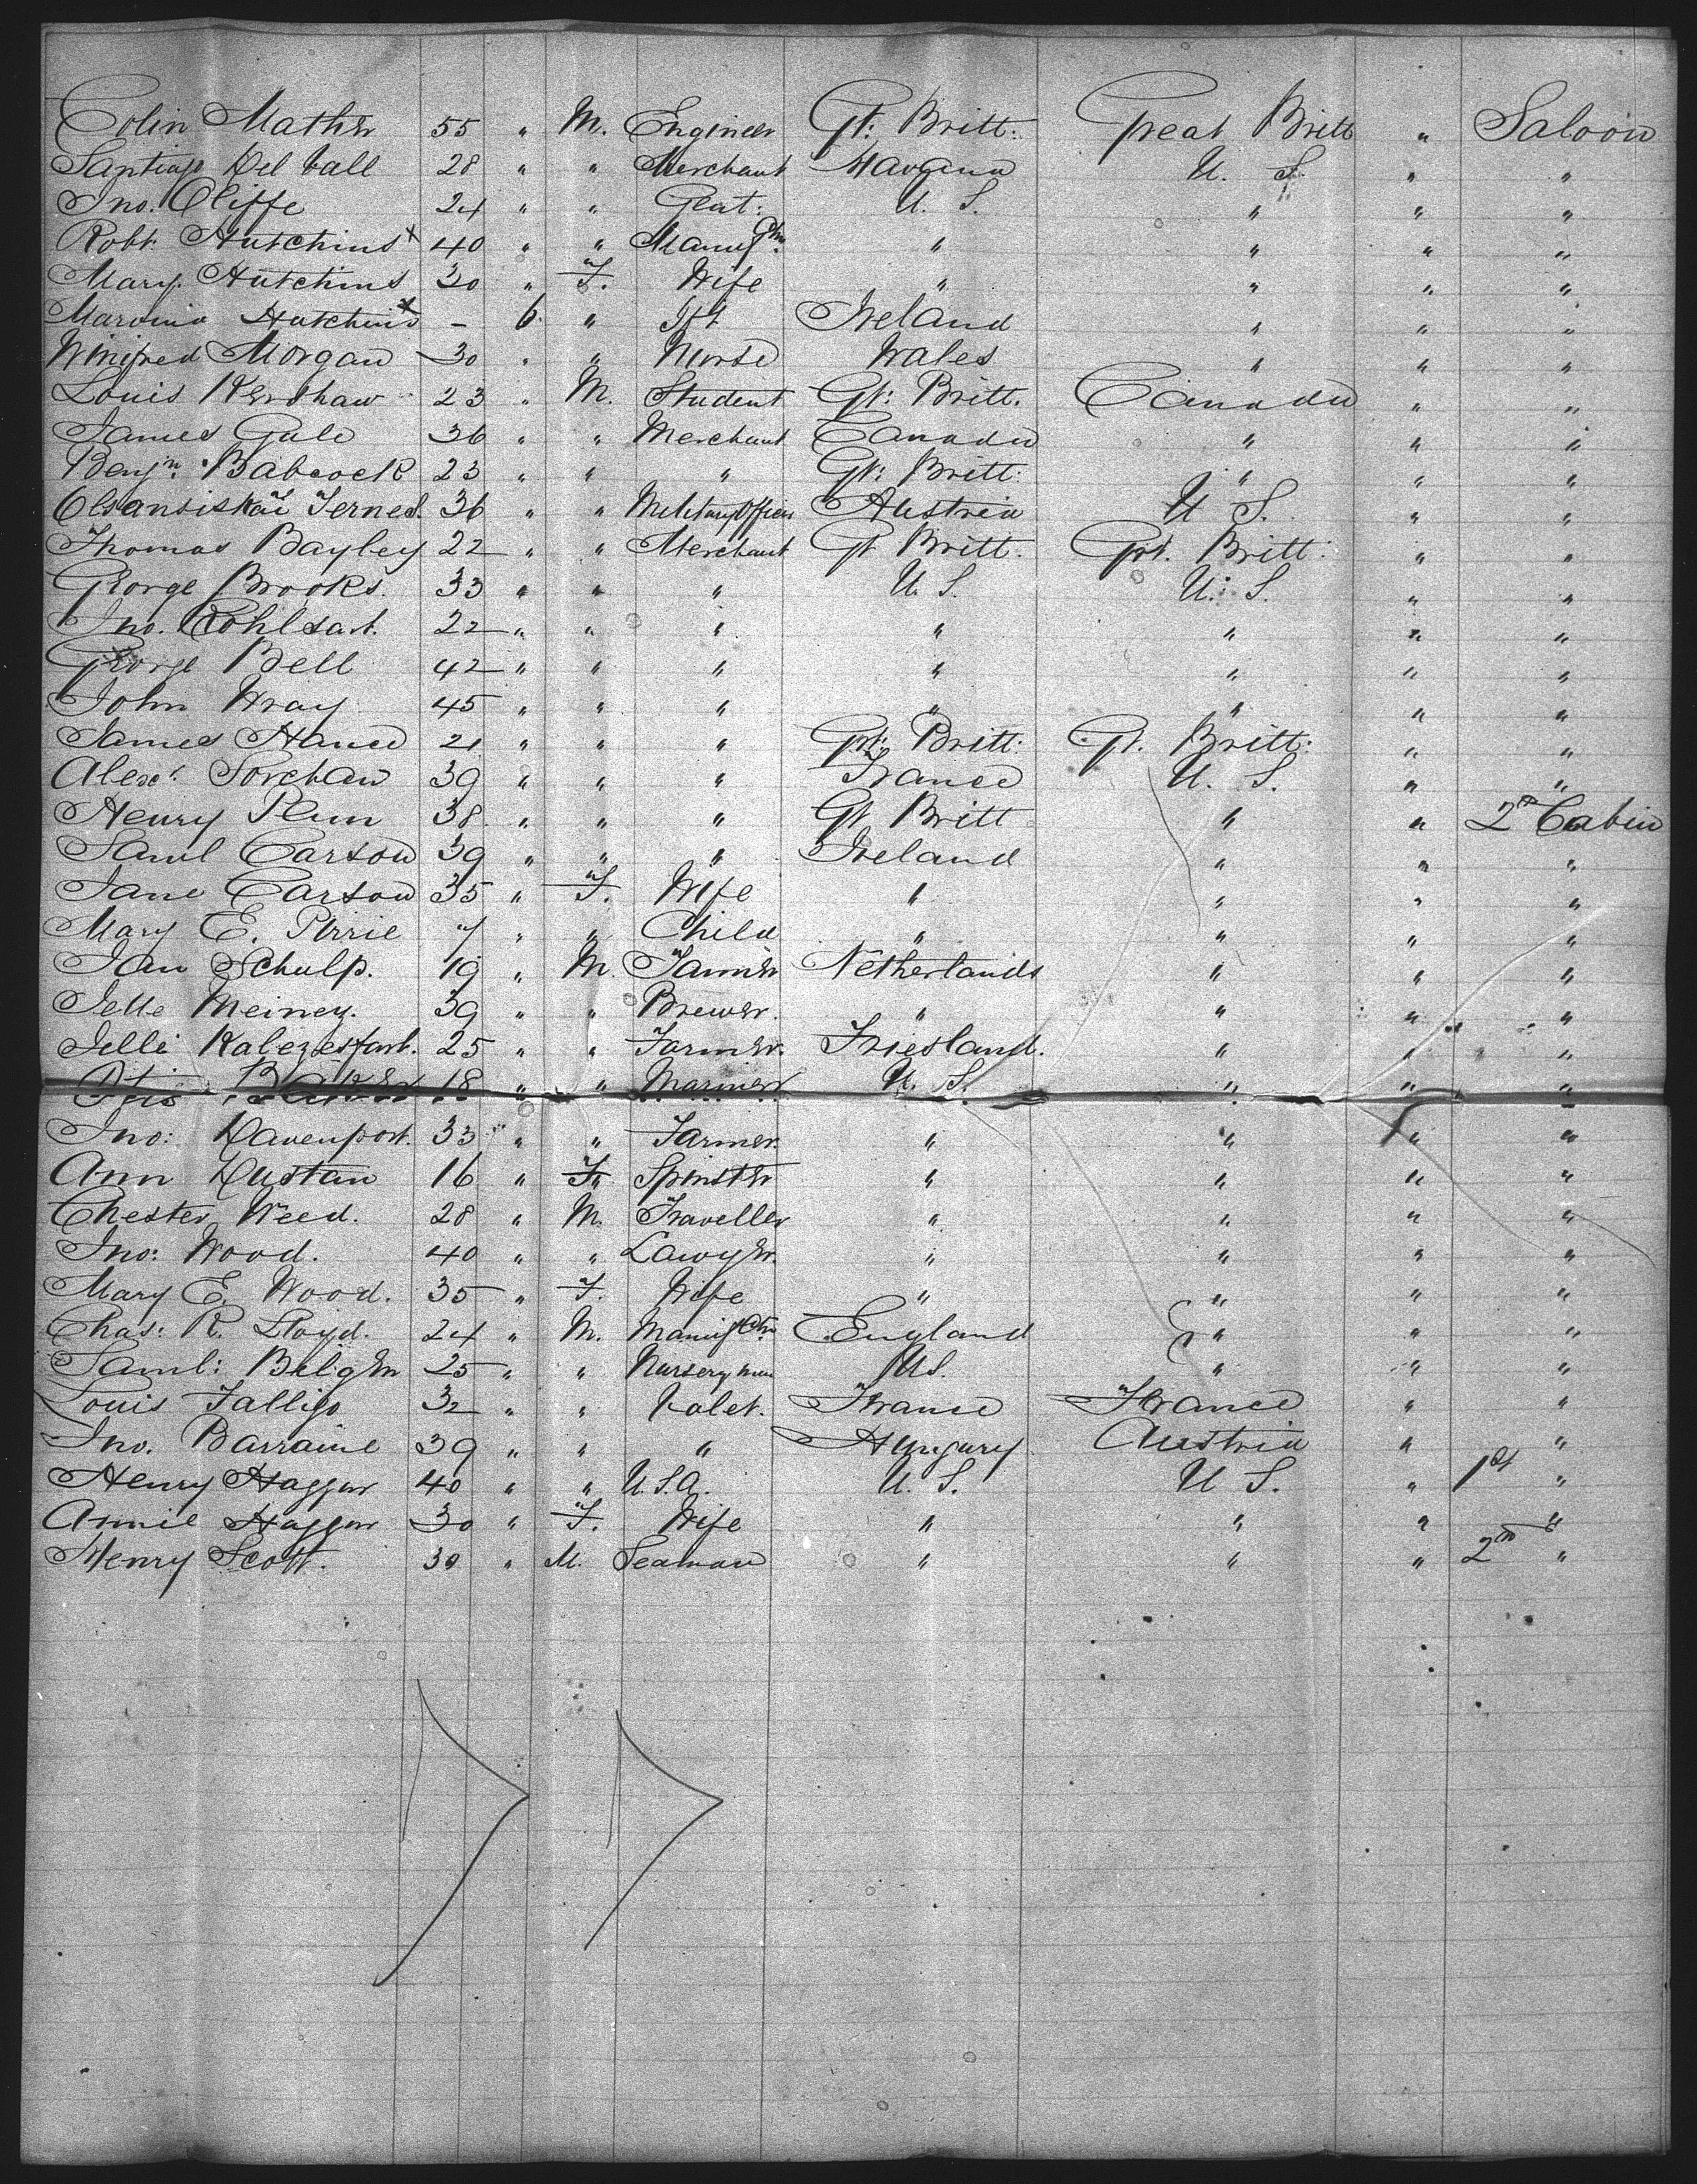 Colin Mather 55 " M. Engineer Gt: Britt: Great Britt " Saloon
Santiago Del Vall 28 " " Merchant Havana U. S. " "
Jno. Cliffe 24 " " Gent: U. S. " " "
Robt. Hutchins x 40 " " " " " "
Mary. Hutchins 30 " F. Wife " " " "
Hutchins x - 6. " Ireland " " "
Winifred Morgan 30 " " Nurse Wales " " "
Louis Kershaw 23 " M. Student Gt: Britt. Canada " "
James Gale 36 " " Merchant Canada " " "
Benjn. Babcock 23 " " " Gt: Britt: " " "
36 " " Military Officer Austria U S. " "
Thomas Bayley 22 " " Merchant Gt Britt. Grt. Britt: " "
George Brooks. 33 " " " U. S. U. S. " "
Jno. Kohlsart. 22 " " " " " " "
George Bell 42 " " " " " " "
John Wray 45 " " " " " " "
James Hance 21 " " " Grt: Britt: Gt. Britt: " "
Alexr. 39 " " " France U. S. " "
Henry Plum 38 " " " Gt Britt " " 2nd Cabin
Saml Carson 39 " " " Ireland " " "
Jane Carson 35 " F. Wife " " " "
Mary E. Pirrie 7 " " Child " " " "
Jan Schulp. 19 " M. Farmer Netherlands " " "
Jelle Meiney. 39 " " Brewer. " " " "
Jelle 25 " " Farmer. Friesland. " " "
Otis Baker 18 " " Mariner U. S. " " "
Jno: Davenport. 33 " " Farmer. " " " "
Ann Dustan 16 " F. Spinster " " " "
Chester Weed. 28 " M. Traveller " " " "
Jno: Wood. 40 " " Lawyer. " " " "
Mary E. Wood. 35 " F. Wife " " " "
Chas: R. Lloyd. 24 " M. England " " "
Saml: Bilger 25 " " Nurseryman US. " " "
Louis Falligo 32 " " Valet. France France " "
Jno. Barraine 39 " " " Hungary Austria " "
Henry Haggar 40 " " U.S.A. U. S. U S. " 1st "
Annie Haggar 30 " F. Wife " " " "
Henry Scott. 30 " M. Seaman " " " 2nd "